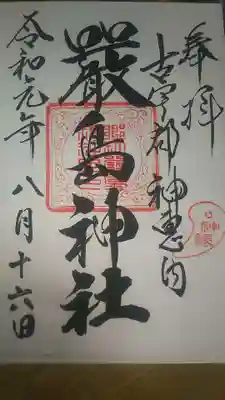 奉拝
古宇郡 神恵内
嚴島神社
令和元年 八月十六日